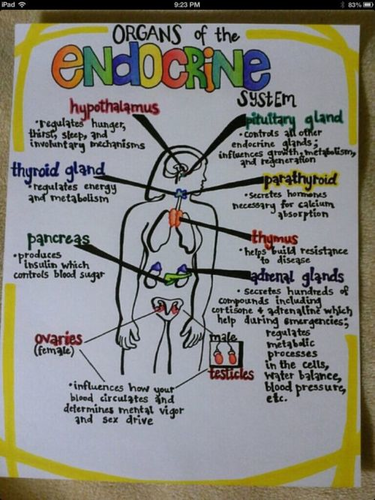 iPad
9:23 PM
83%
ORGANS of the
ENDOCRINE
SYSTEM
hypothalamus
• regulates hunger,
thirst, sleep, and
involuntary mechanisms
pituitary gland
• controls all other
endocrine glands;
influences growth, metabolism,
and regeneration
thyroid gland
• regulates energy
and metabolism
parathyroid
• secretes hormones
necessary for calcium
absorption
pancreas
• produces
insulin which
controls blood sugar
thymus
• helps build resistance
to disease
adrenal glands
• secretes hundreds of
compounds including
cortisone & adrenaline which
help during emergencies;
regulates
metabolic
processes
in the cells,
water balance,
blood pressure,
etc.
ovaries
(female)
male
testicles
• influences how your
blood circulates and
determines mental vigor
and sex drive